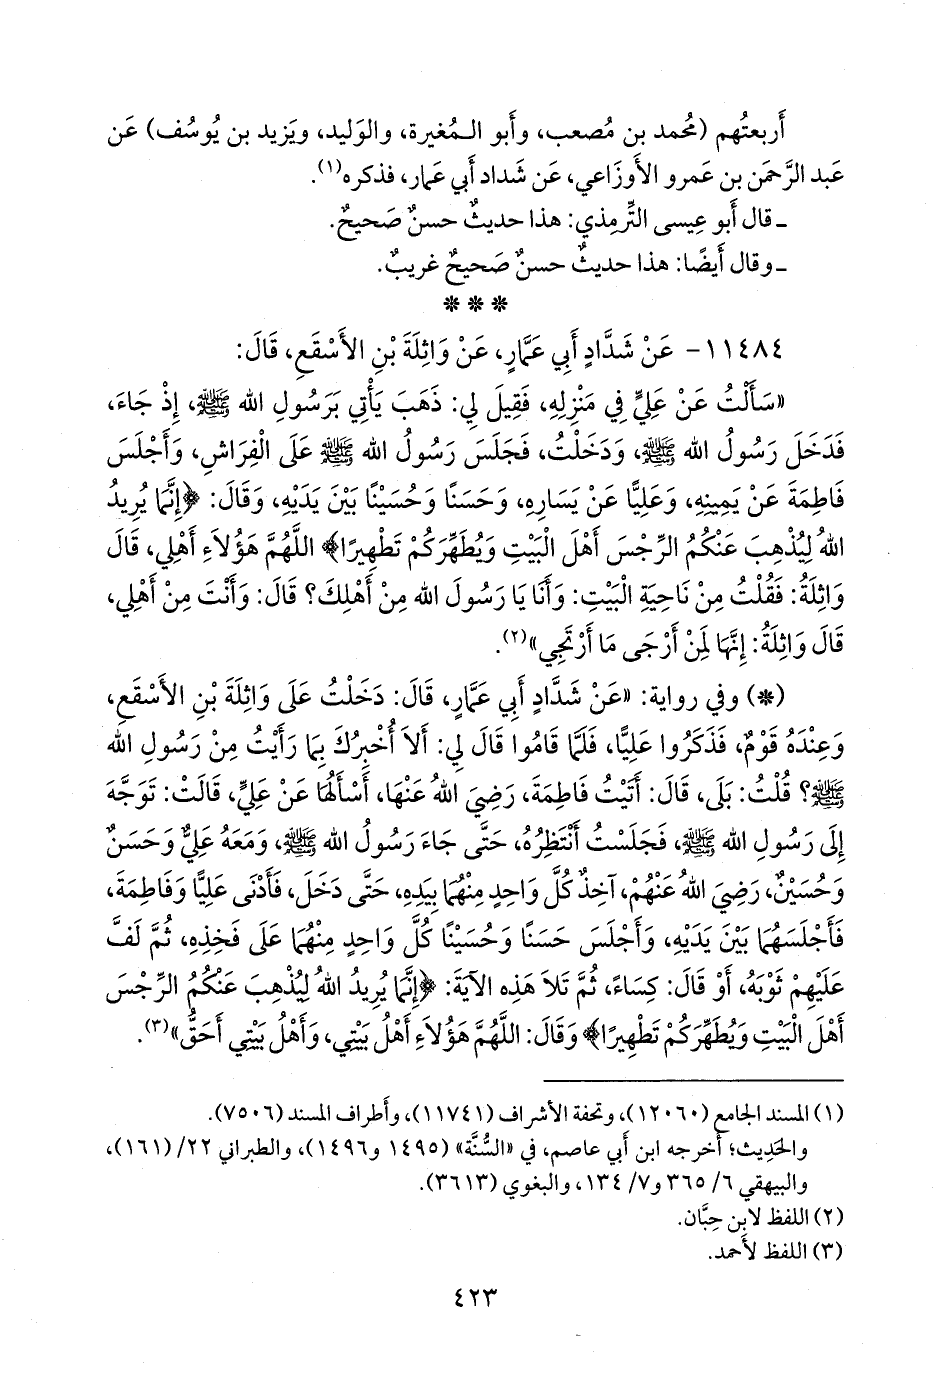 أَربعتُهم (مُحمد بن مُصعب، وأَبو الـمُغيرة، والوَليد، ويَزيد بن يُوسُف) عَن
عَبد الرَّحمَن بن عَمرو الأَوزَاعي، عَن شَداد أَبي عَمار، فذكره(١).
ـ قال أَبو عِيسى التِّرمِذي: هذا حديثٌ حسنٌ صَحيحٌ.
ـ وقال أَيضًا: هذا حديثٌ حسنٌ صَحيحٌ غريبٌ.
* * *
١١٤٨٤- عَنْ شَدَّادٍ أَبِي عَمَّارٍ، عَنْ وَاثِلَةَ بْنِ الأَسْقَعِ، قَالَ:
«سَأَلْتُ عَنْ عَلِيٍّ فِي مَنْزِلِهِ، فَقِيلَ لِي: ذَهَبَ يَأْتِي بَرَسُولِ الله ﷺ، إِذْ جَاءَ،
فَدَخَلَ رَسُولُ الله ﷺ، وَدَخَلْتُ، فَجَلَسَ رَسُولُ الله ﷺ عَلَى الْفِرَاشِ، وَأَجْلَسَ
فَاطِمَةَ عَنْ يَمِينِهِ، وَعَلِيًّا عَنْ يَسَارِهِ، وَحَسَنًا وَحُسَيْنًا بَيْنَ يَدَيْهِ، وَقَالَ: ﴿إِنَّمَا يُرِيدُ
اللهُ لِيُذْهِبَ عَنْكُمُ الرِّجْسَ أَهْلَ الْبَيْتِ وَيُطَهِّرَكُمْ تَطْهِيرًا﴾ اللَّهُمَّ هَؤُلاَءِ أَهْلِي، قَالَ
وَاثِلَةُ: فَقُلْتُ مِنْ نَاحِيَةِ الْبَيْتِ: وَأَنَا يَا رَسُولَ الله مِنْ أَهْلِكَ؟ قَالَ: وَأَنْتَ مِنْ أَهْلِي،
قَالَ وَاثِلَةُ: إِنَّهَا لَمِنْ أَرْجَى مَا أَرْتَجِي»(٢).
(*) وفي رواية: «عَنْ شَدَّادٍ أَبِي عَمَّارٍ، قَالَ: دَخَلْتُ عَلَى وَاثِلَةَ بْنِ الأَسْقَعِ،
وَعِنْدَهُ قَوْمٌ، فَذَكَرُوا عَلِيًّا، فَلَمَّا قَامُوا قَالَ لِي: أَلاَ أُخْبِرُكَ بِمَا رَأَيْتُ مِنْ رَسُولِ الله
ﷺ؟ قُلْتُ: بَلَى، قَالَ: أَتَيْتُ فَاطِمَةَ، رَضِيَ اللهُ عَنْهَا، أَسْأَلُهَا عَنْ عَلِيٍّ، قَالَتْ: تَوَجَّهَ
إِلَى رَسُولِ الله ﷺ، فَجَلَسْتُ أَنْتَظِرُهُ، حَتَّى جَاءَ رَسُولُ الله ﷺ، وَمَعَهُ عَلِيٌّ وَحَسَنٌ
وَحُسَيْنٌ، رَضِيَ اللهُ عَنْهُمْ، آخِذٌ كُلَّ وَاحِدٍ مِنْهُمَا بِيَدِهِ، حَتَّى دَخَلَ، فَأَدْنَى عَلِيًّا وَفَاطِمَةَ،
فَأَجْلَسَهُمَا بَيْنَ يَدَيْهِ، وَأَجْلَسَ حَسَنًا وَحُسَيْنًا كُلَّ وَاحِدٍ مِنْهُمَا عَلَى فَخِذِهِ، ثُمَّ لَفَّ
عَلَيْهِمْ ثَوْبَهُ، أَوْ قَالَ: كِسَاءً، ثُمَّ تَلاَ هَذِهِ الآيَةَ: ﴿إِنَّمَا يُرِيدُ اللهُ لِيُذْهِبَ عَنْكُمُ الرِّجْسَ
أَهْلَ الْبَيْتِ وَيُطَهِّرَكُمْ تَطْهِيرًا﴾ وَقَالَ: اللَّهُمَّ هَؤُلاَءِ أَهْلُ بَيْتِي، وَأَهْلُ بَيْتِي أَحَقُّ»(٣).
(١) المسند الجامع (١٢٠٦٠)، وتحفة الأشراف (١١٧٤١)، وأطراف المسند (٧٥٠٦).
والحَدِيث؛ أخرجه ابن أبي عاصم، في «السُّنَّة» (١٤٩٥ و١٤٩٦)، والطبراني ٢٢/ (١٦١)،
والبيهقي ٦/ ٣٦٥ و٧/ ١٣٤، والبغوي (٣٦١٣).
(٢) اللفظ لابن حِبَّان.
(٣) اللفظ لأحمد.
٤٢٣